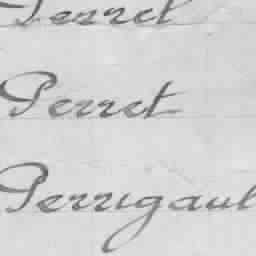 Perret
Perret
Perrigaul